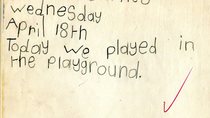 wednesday
April 18th
Today we played in
the playground.